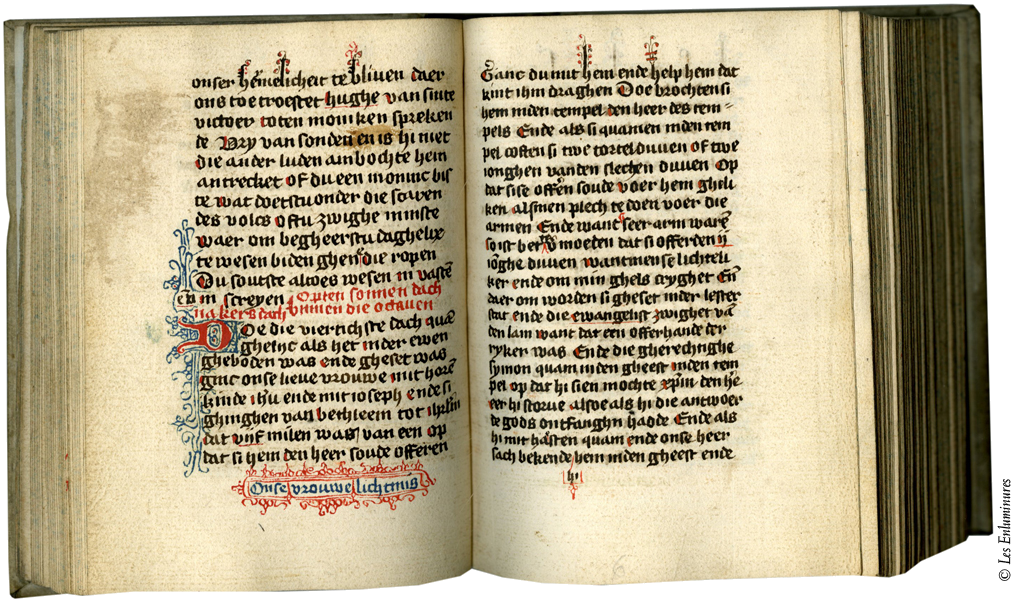 onser hēmelicheit te bliven daer
ons toe troestet hughe van sinte
victoer toten moniken spreken
de Vry van sonden en is hi niet
die ander luden ambochte hem
antrecket Of du een moninc bis
te wat doetstu onder die scaren
des volcs Oftu zwighe minste
waer om begheerstu daghelix
te wesen biden ghenē die ropen
Du soutste altoes wesen in vastē
eñ in screyen Opten sonnen dach
na kersdach binnen die octauen
Doe die viertichste dach quā
ghelijc als het inder ewen
gheboden was ende gheset was
ginc onse lieve vrouwe mit horē
kinde ihū ende mit ioseph ende si
ghinghen van bethleem tot ihrlm
dat vijf milen was van een op
dat si hem den heer soude offeren
Onse vrouwe lichtmis
Ganc du mit hem ende help hem dat
kint ihm draghen Doe brochten si
hem inden tempel den heer des tem-
pels Ende als si quamen inden tem
pel costen si twe tortelduven of twe
ionghen vanden slechen duven Op
dat sise offerē soude voer hem gheli
ken alsmen plech te doen voer die
armen Ende want seer arm warē
so ist moeden dat si offerden ij
iōghe duven want mense lichteli
ker ende om min ghels cryghet Eñ
daer om worden si gheset inder lester
stat ende die ewangelist zwighet vā
den lam want dat een offerhande der
ryker was Ende die gherechtighe
symon quam inden gheest inden tem
pel op dat hi sien mochte xpm den he
eer hi storve alsoe als hi die antwoer
de gods ontfanghn hadde Ende als
hi mit hasten quam ende onse heer
sach bekende hem inden gheest ende
hi
© Les Enluminures